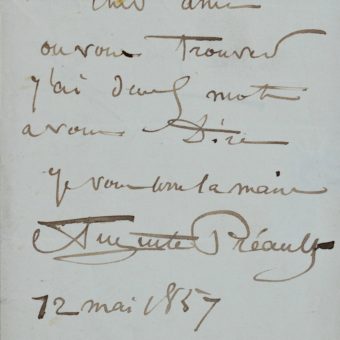 cher ami
ou vous trouver
j'ai deux mots
a vous dire
je vous serre la main
Auguste Préault
12 mai 1857